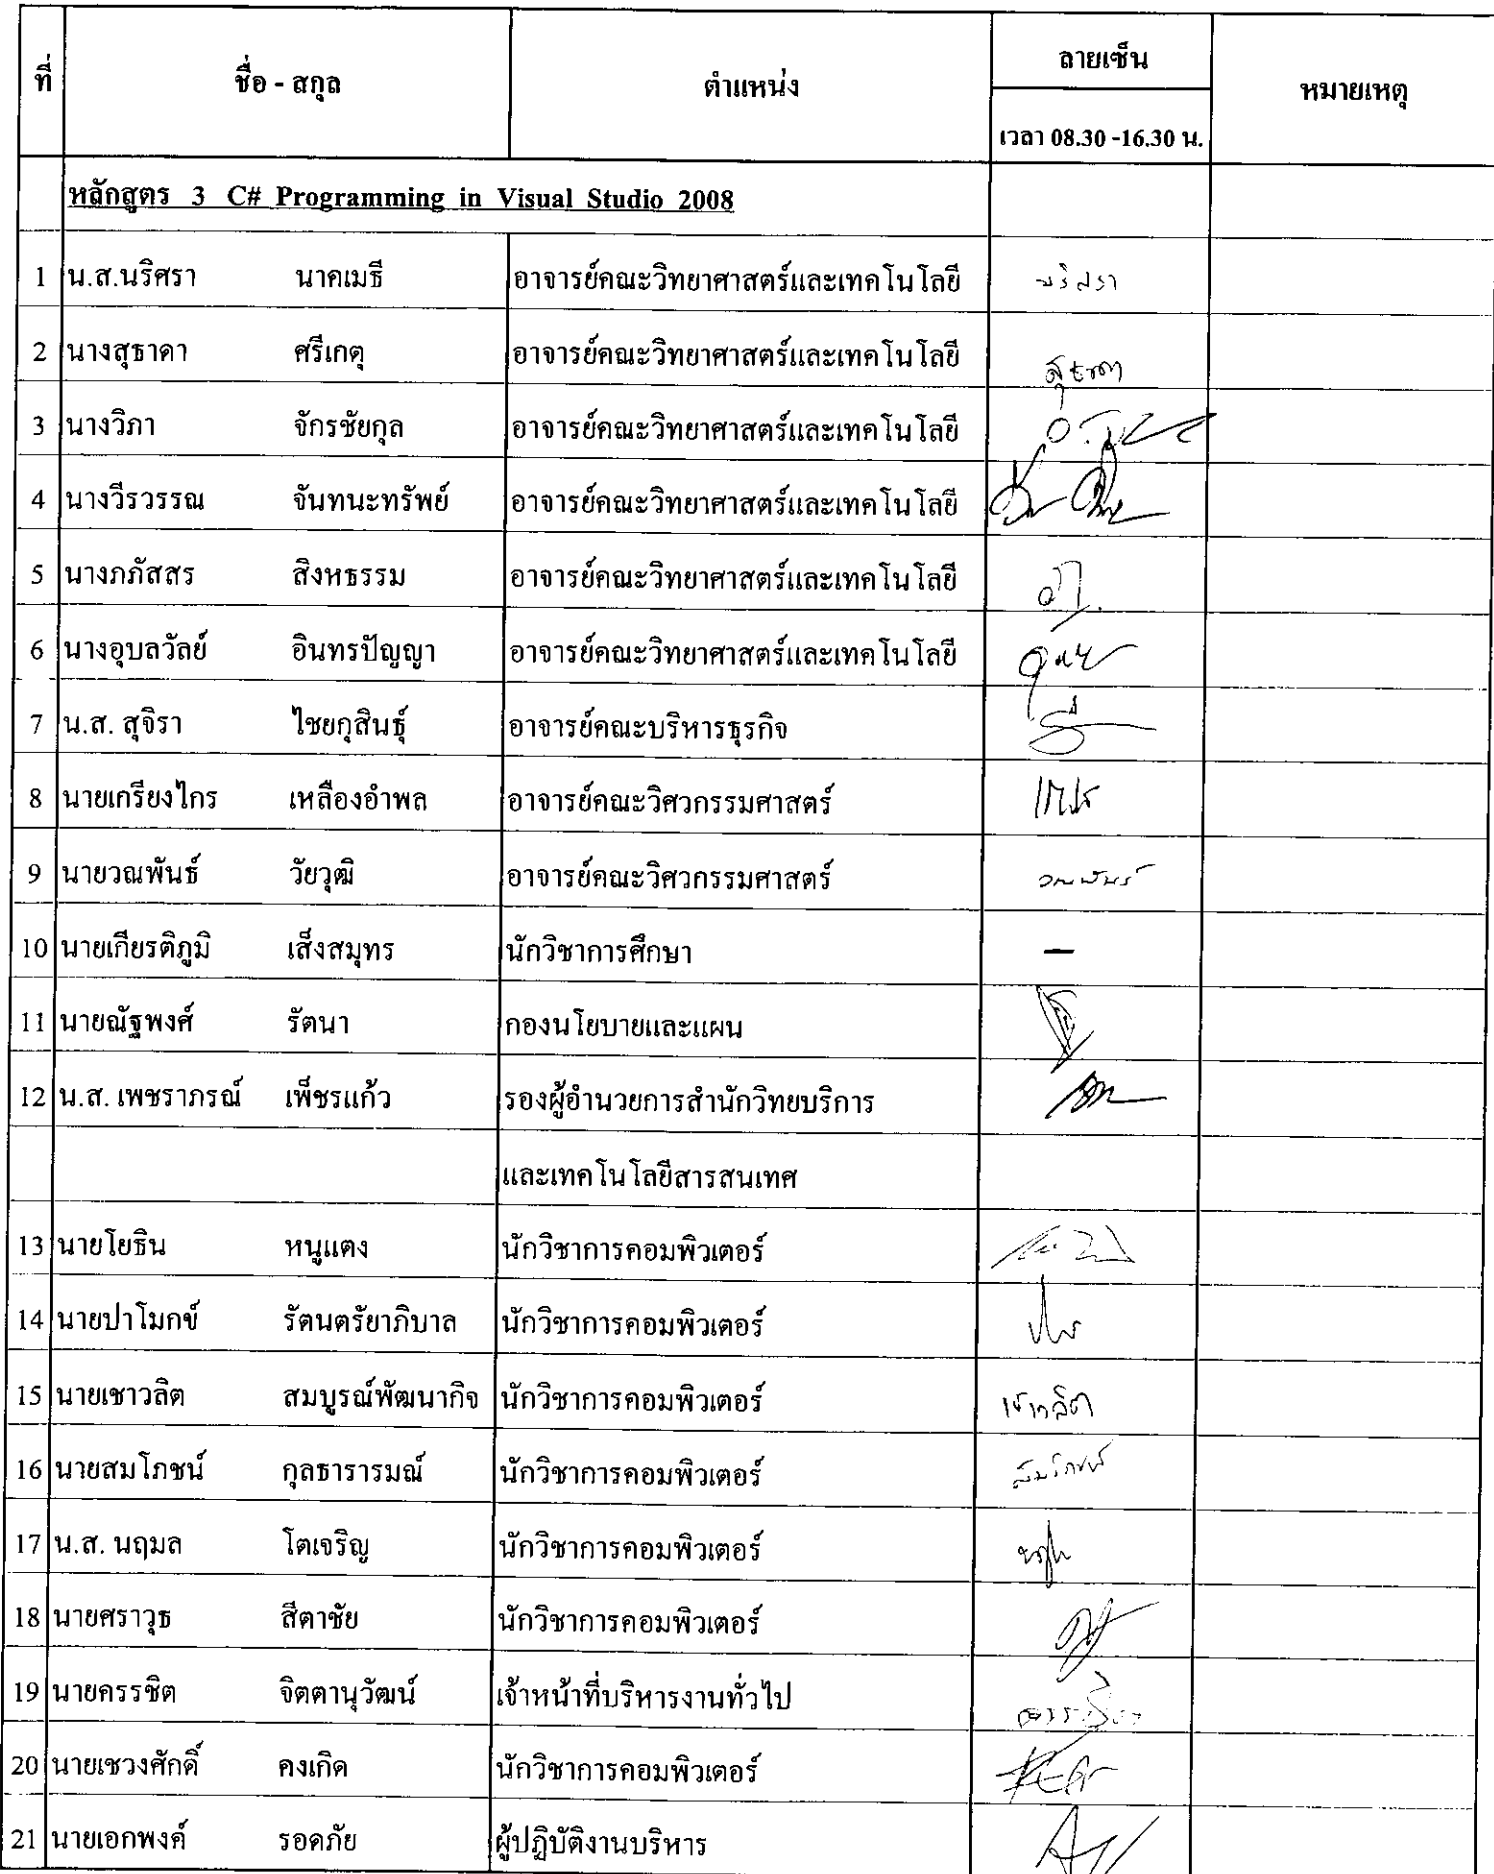 ที่ ชื่อ - สกุล ตำแหน่ง ลายเซ็น หมายเหตุ
เวลา 08.30 -16.30 น.
หลักสูตร 3 C# Programming in Visual Studio 2008
1 น.ส.นริศรา นาคเมธี อาจารย์คณะวิทยาศาสตร์และเทคโนโลยี นริศรา
2 นางสุธาดา ศรีเกตุ อาจารย์คณะวิทยาศาสตร์และเทคโนโลยี สุธาดา
3 นางวิภา จักรชัยกุล อาจารย์คณะวิทยาศาสตร์และเทคโนโลยี
4 นางวีรวรรณ จันทนะทรัพย์ อาจารย์คณะวิทยาศาสตร์และเทคโนโลยี
5 นางภภัสสร สิงหธรรม อาจารย์คณะวิทยาศาสตร์และเทคโนโลยี
6 นางอุบลวัลย์ อินทรปัญญา อาจารย์คณะวิทยาศาสตร์และเทคโนโลยี
7 น.ส. สุจิรา ไชยกุสินธุ์ อาจารย์คณะบริหารธุรกิจ
8 นายเกรียงไกร เหลืองอำพล อาจารย์คณะวิศวกรรมศาสตร์
9 นายวณพันธ์ วัยวุฒิ อาจารย์คณะวิศวกรรมศาสตร์ วณพันธ์
10 นายเกียรติภูมิ เส็งสมุทร นักวิชาการศึกษา -
11 นายณัฐพงศ์ รัตนา กองนโยบายและแผน
12 น.ส. เพชราภรณ์ เพ็ชรแก้ว รองผู้อำนวยการสำนักวิทยบริการ
และเทคโนโลยีสารสนเทศ
13 นายโยธิน หนูแดง นักวิชาการคอมพิวเตอร์
14 นายปาโมกข์ รัตนตรัยาภิบาล นักวิชาการคอมพิวเตอร์
15 นายเชาวลิต สมบูรณ์พัฒนากิจ นักวิชาการคอมพิวเตอร์ เชาวลิต
16 นายสมโภชน์ กุลธารารมณ์ นักวิชาการคอมพิวเตอร์ สมโภชน์
17 น.ส. นฤมล โตเจริญ นักวิชาการคอมพิวเตอร์
18 นายศราวุธ สีตาชัย นักวิชาการคอมพิวเตอร์
19 นายครรชิต จิตตานุวัฒน์ เจ้าหน้าที่บริหารงานทั่วไป ครรชิต
20 นายเชวงศักดิ์ คงเกิด นักวิชาการคอมพิวเตอร์
21 นายเอกพงค์ รอดภัย ผู้ปฏิบัติงานบริหาร